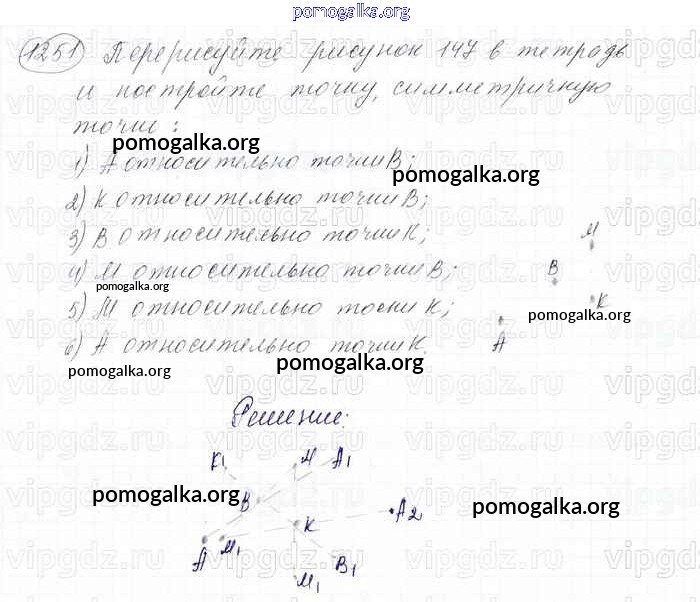 pomogalka.org
1251 Перерисуйте рисунок 147 в тетрадь
и постройте точку, симметричную
точке:
pomogalka.org
1) А относительно точки В;
pomogalka.org
2) К относительно точки В;
3) В относительно точки К;
М
4) М относительно точки В;
В
pomogalka.org
К
5) М относительно тоски К;
pomogalka.org
6) А относительно точки К.
А
pomogalka.org
pomogalka.org
Решение:
К1 М А1
pomogalka.org
В
К А2
pomogalka.org
А М1
В1
М1
vipgdz.ru